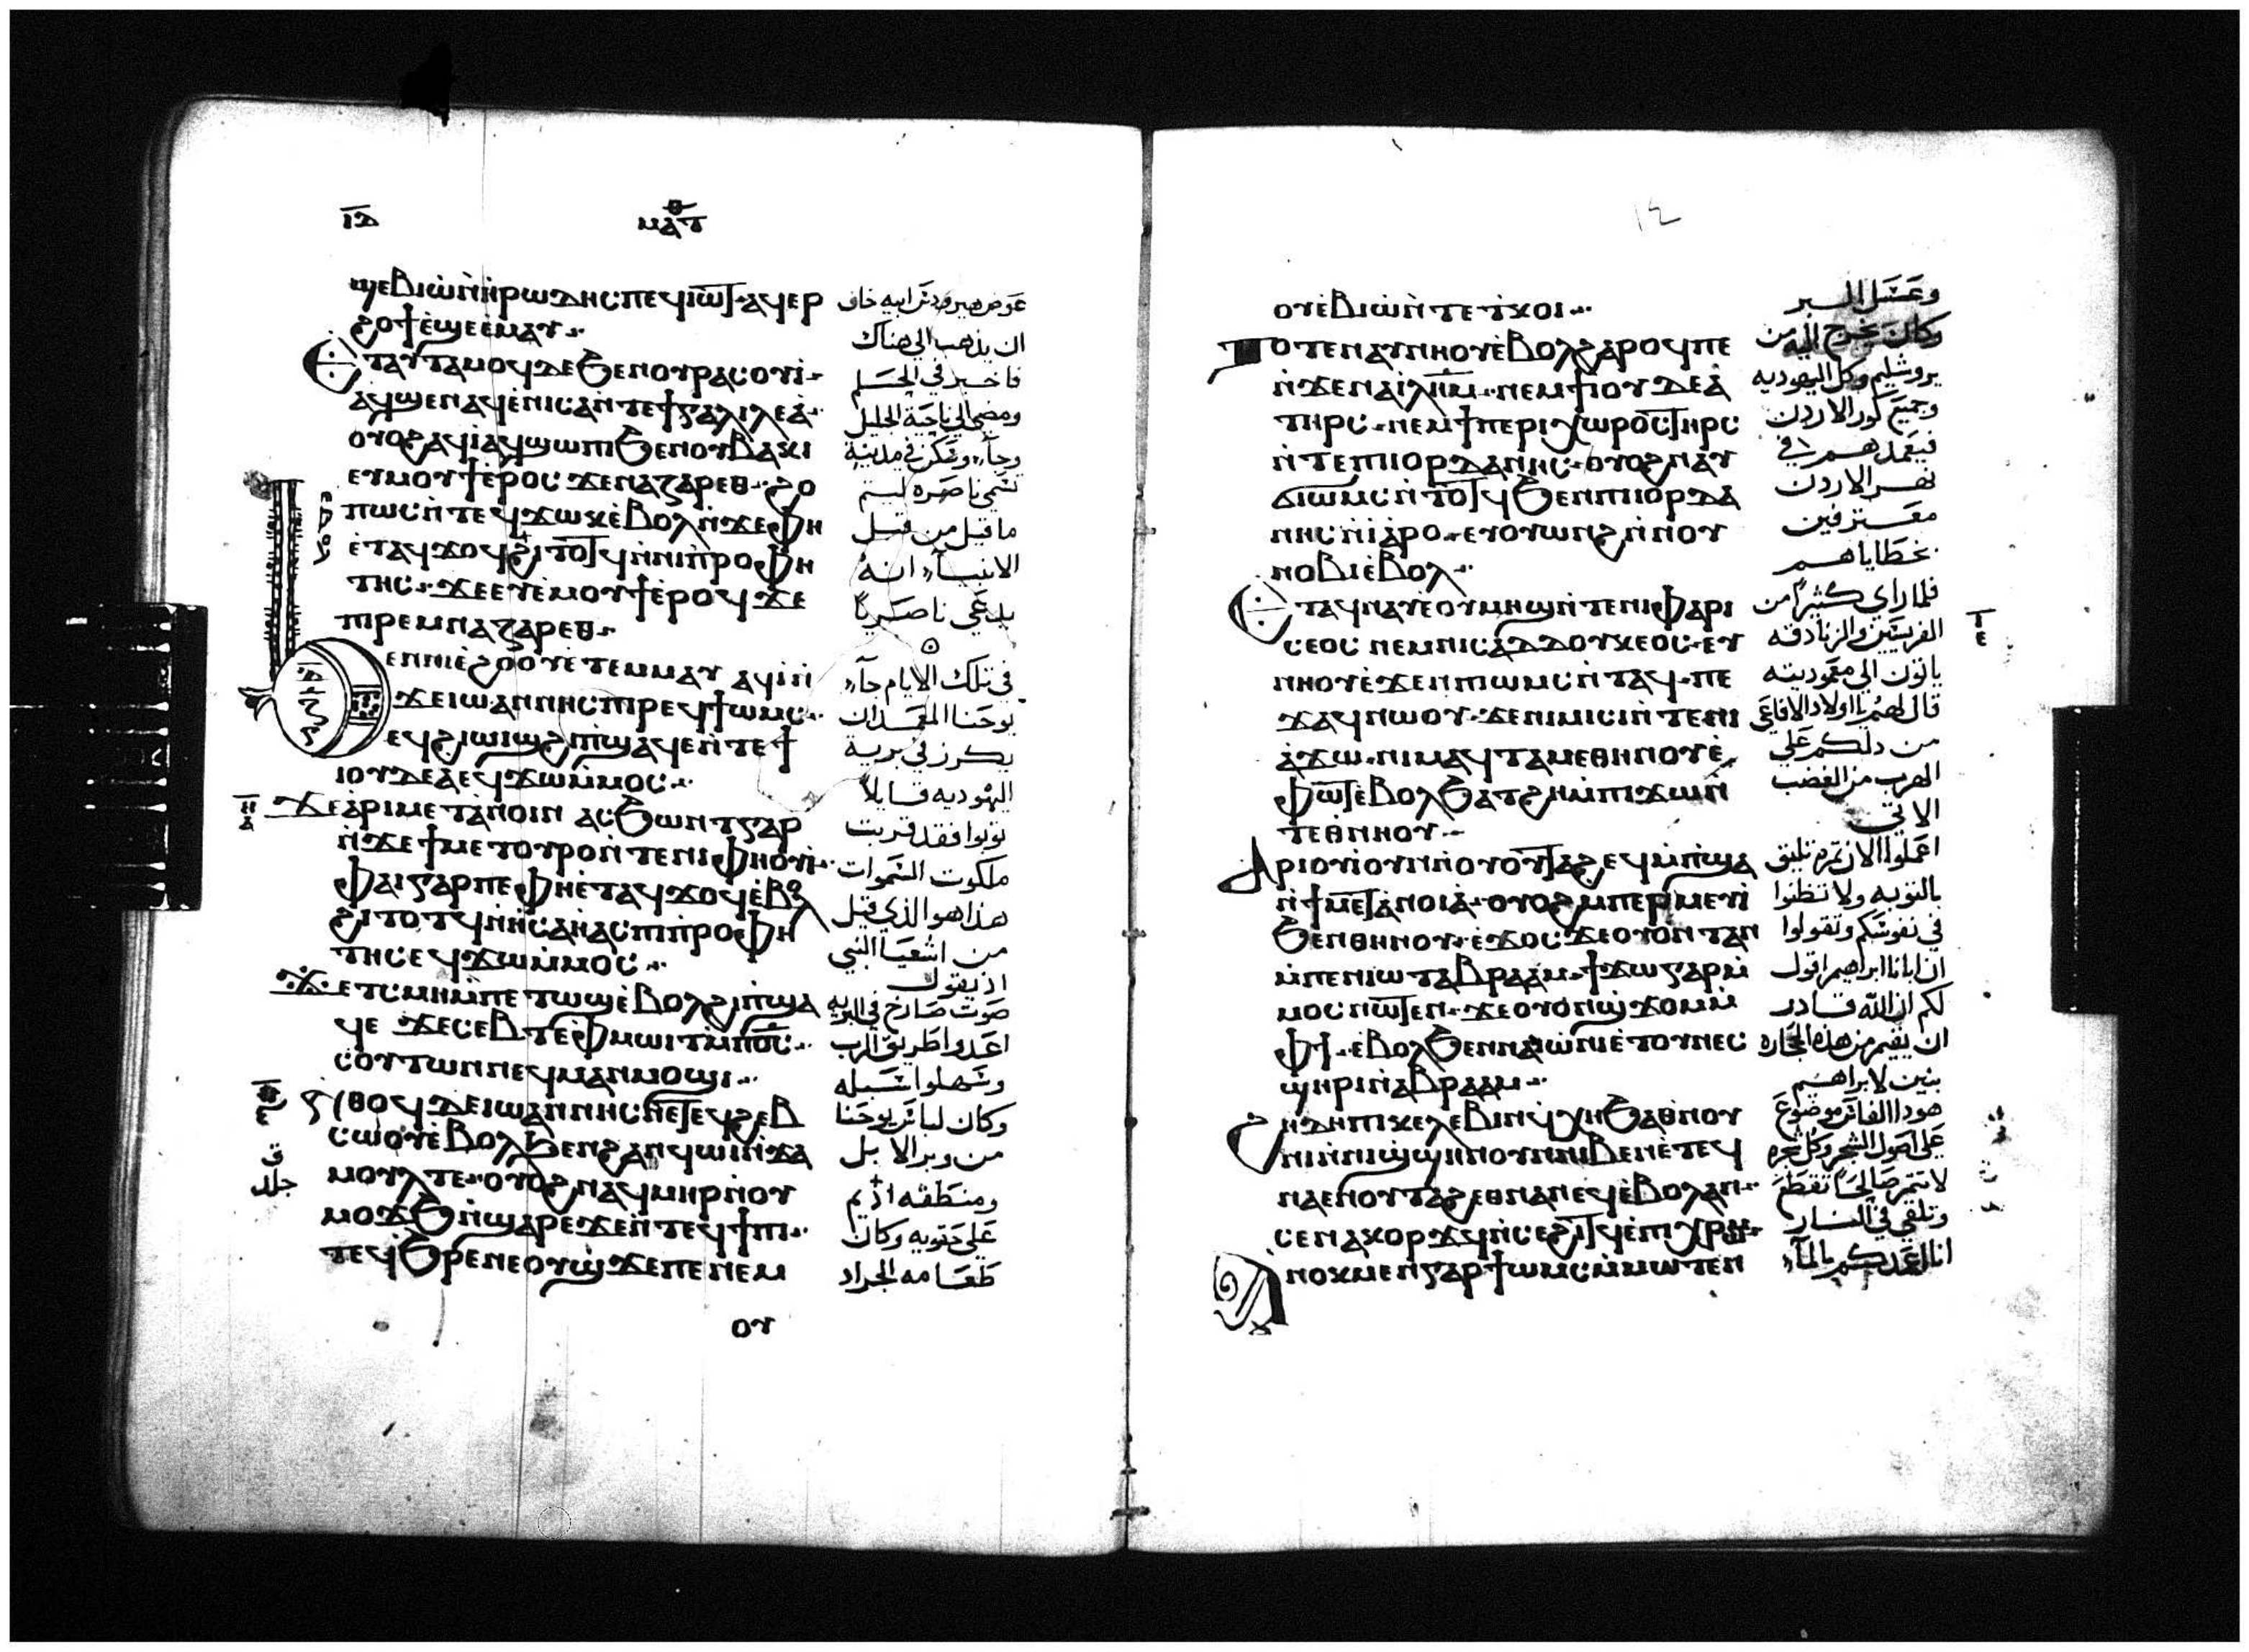 ⲓⲇ
ⲙⲁⲧⲑ
ϣⲉⲃⲓⲱ ⲛ̀ⲏⲣⲱⲇⲏⲥ ⲡⲉϥⲓⲱⲧ ⲁϥⲉⲣ
ϩⲟϯ ⲉ̀ϣⲉ ⲉ̀ⲙⲁⲩ
ⲉⲧⲁⲩⲧⲁⲙⲟϥ ⲇⲉ ϧⲉⲛ ⲟⲩⲣⲁⲥⲟⲩⲓ̀
ⲁϥϣⲉⲛⲁϥ ⲉ̀ⲛⲓⲥⲁ ⲛ̀ⲧⲉ ϯⲅⲁⲗⲓⲗⲉⲁ̀
ⲟⲩⲟϩ ⲁϥⲓ̀ ⲁϥϣⲱⲡⲓ ϧⲉⲛ ⲟⲩⲃⲁⲕⲓ
ⲉⲩⲙⲟⲩϯ ⲉ̀ⲣⲟⲥ ϫⲉ ⲛⲁⲍⲁⲣⲉⲑ ϩⲟ
ⲡⲱⲥ ⲛ̀ⲧⲉϥϫⲱⲕ ⲉ̀ⲃⲟⲗ ⲛ̀ϫⲉ ⲫⲏ
ⲉ̀ⲧⲁϥϫⲟϥ ϩⲓⲧⲟⲧϥ ⲛ̀ⲛⲓⲡ̀ⲣⲟⲫⲏ
ⲧⲏⲥ ϫⲉ ⲉⲩⲉ̀ⲙⲟⲩϯ ⲉ̀ⲣⲟϥ ϫⲉ
ⲡⲓⲣⲉⲙⲛⲁⲍⲁⲣⲉⲑ
ⲉⲛⲛⲓⲉ̀ϩⲟⲟⲩ ⲉ̀ⲧⲉⲙⲙⲁⲩ ⲁϥⲓ̀ ⲛ̀
ϫⲉ ⲓⲱⲁⲛⲛⲏⲥ ⲡⲓⲣⲉϥϯⲱⲙⲥ
ⲉϥϩⲓⲱⲓϣ ϩⲓ ⲡϣⲁϥⲉ ⲛ̀ⲧⲉ ϯ
ⲓⲟⲩⲇⲉⲁ ⲉϥϫⲱ ⲙ̀ⲙⲟⲥ
ϫⲉ ⲁ̀ⲣⲓⲙⲉⲧⲁⲛⲟⲓⲛ ⲁⲥϧⲱⲛⲧ ⲅⲁⲣ
ⲛ̀ϫⲉ ϯⲙⲉⲧⲟⲩⲣⲟ ⲛ̀ⲧⲉ ⲛⲓⲫⲏⲟⲩⲓ̀
ⲫⲁⲓ ⲅⲁⲣ ⲡⲉ ⲫⲏ ⲉ̀ⲧⲁϥϫⲟϥ ⲉ̀ⲃⲟⲗ
ϩⲓⲧⲟⲧϥ ⲛ̀ⲏⲥⲁⲏⲁⲥ ⲡⲓⲡ̀ⲣⲟⲫⲏ
ⲧⲏⲥ ⲉϥϫⲱ ⲙ̀ⲙⲟⲥ
ϫⲉ ⲧ̀ⲥⲙⲏ ⲙ̀ⲡⲉⲧⲱϣ ⲉ̀ⲃⲟⲗ ϩⲓ ⲡ̀ϣⲁ
ϥⲉ ϫⲉ ⲥⲉⲃⲧⲉ ⲫ̀ⲙⲱⲓⲧ ⲙ̀ⲡⲟ̅ⲥ̅
ⲥⲟⲩⲧⲱⲛ ⲛⲉϥⲙⲁⲛⲙⲟϣⲓ
ⲛ̀ⲑⲟϥ ⲇⲉ ⲓⲱⲁⲛⲛⲏⲥ ⲛⲉ ⲧⲉϥϩⲉⲃ
ⲥⲱ ⲟⲩⲉ̀ⲃⲟⲗ ϧⲉⲛ ϩⲁⲛϥⲱⲓ ⲛ̀ϫⲁ
ⲙⲟⲩⲗ ⲧⲉ ⲟⲩⲟϩ ⲛⲁϥⲙⲏⲣ ⲛ̀ⲟⲩ
ⲙⲟϫϧ ⲛ̀ϣⲁⲣ ⲉϫⲉⲛ ⲧⲉϥϯⲡⲓ
ⲧⲉϥϧⲣⲉ ⲛⲉ ⲟⲩϣϫⲉ ⲡⲉ ⲛⲉⲙ
ⲟⲩ
عوض هيرودس ابيه خاف
ان يذهب الى هناك
فاخبر في الحلم
ومضى الى ناحية الجليل
وجآء وسكن في مدينة
تسمى ناصره ليتم
ما قيل من قبل
الانبيآء انه
يدعي ناصريًا
في تلك الايام جآء
يوحنا المعمدان
يكرز في برية
اليهوديه قايلًا
توبوا فقد قربت
ملكوت السموات
هذا هو الذي قيل
من اشعيا النبي
اذ يقول
صوت صارخ في البريه
اعدوا طريق الرب
وسهلوا سبله
وكان لباس يوحنا
من وبر الابل
ومنطقه اديم
على حقويه وكان
طعامه الجراد
جلد
١٤
ⲟⲩⲉ̀ⲃⲓⲱ ⲛ̀ⲧⲉ ⲧ̀ⲕⲟⲓ
ⲧⲟⲧⲉ ⲛⲁⲩⲛⲏⲟⲩ ⲉ̀ⲃⲟⲗ ϩⲁⲣⲟϥ ⲡⲉ
ⲛ̀ϫⲉ ⲛⲁ ⲓ̅ⲗ̅ⲏ̅ⲙ̅ ⲛⲉⲙ ϯⲓⲟⲩⲇⲉⲁ̀
ⲧⲏⲣⲥ ⲛⲉⲙ ϯⲡⲉⲣⲓⲭⲱⲣⲟⲥ ⲧⲏⲣⲥ
ⲛ̀ⲧⲉ ⲡⲓⲓⲟⲣⲇⲁⲛⲏⲥ ⲟⲩⲟϩ ⲛⲁⲩ
ϭⲓⲱⲙⲥ ⲛ̀ⲧⲟⲧϥ ϧⲉⲛ ⲡⲓⲓⲟⲣⲇⲁ
ⲛⲏⲥ ⲛ̀ⲓⲁⲣⲟ ⲉⲩⲟⲩⲱⲛϩ ⲛ̀ⲛⲟⲩ
ⲛⲟⲃⲓ ⲉ̀ⲃⲟⲗ
ⲉⲧⲁϥⲛⲁⲩ ⲉ̀ⲟⲩⲙⲏϣ ⲛ̀ⲧⲉ ⲛⲓⲫⲁⲣⲓ
ⲥⲉⲟⲥ ⲛⲉⲙ ⲛⲓⲥⲁⲇⲇⲟⲩⲕⲉⲟⲥ ⲉⲩ
ⲛⲏⲟⲩ ⲉ̀ϫⲉⲛ ⲡⲓⲱⲙⲥ ⲛ̀ⲧⲁϥ ⲡⲉ
ϫⲁϥ ⲛⲱⲟⲩ ϫⲉ ⲛⲓⲙⲓⲥⲓ ⲛ̀ⲧⲉ ⲛⲓ
ⲁ̀ϫⲱ ⲛⲓⲙ ⲁϥⲧⲁⲙⲉ ⲑⲏⲛⲟⲩ ⲉ̀
ⲫⲱⲧ ⲉ̀ⲃⲟⲗ ϧⲁⲧϩⲏ ⲙ̀ⲡⲓϫⲱⲛⲧ
ⲉⲑⲛⲏⲟⲩ
ⲁⲣⲓⲟⲩⲓ̀ ⲟⲩⲛ ⲛ̀ⲟⲩⲟⲩⲧⲁϩ ⲉϥⲙ̀ⲡ̀ϣⲁ
ⲛ̀ϯⲙⲉⲧⲁⲛⲟⲓⲁ̀ ⲟⲩⲟϩ ⲙⲡⲉⲣⲙⲉⲩⲓ̀
ϧⲉⲛ ⲑⲏⲛⲟⲩ ⲉ̀ϫⲟⲥ ϫⲉ ⲟⲩⲟⲛⲧⲁⲛ
ⲙ̀ⲡⲉⲛⲓⲱⲧ ⲁⲃⲣⲁⲁⲙ ϯϫⲱ ⲅⲁⲣ ⲙ̀
ⲙⲟⲥ ⲛⲱⲧⲉⲛ ϫⲉ ⲟⲩⲟⲛϣϫⲟⲙ ⲙ̀
ⲫϯ ⲉ̀ⲃⲟⲗ ϧⲉⲛ ⲛⲁⲓⲱ̀ⲛⲓ ⲉ̀ⲧⲟⲩⲛⲉⲥ
ϣⲏⲣⲓ ⲛ̀ⲁⲃⲣⲁⲁⲙ
ϩⲏⲇⲏ ⲡⲓⲕⲉⲗⲉⲃⲓⲛ ϥ̀ⲭⲏ ϧⲁ ⲑ̀ⲛⲟⲩ
ⲛⲓ ⲛ̀ⲛⲓϣ̀ϣⲏⲛ ⲟⲩⲛ ⲛⲓⲃⲉⲛ ⲉ̀ⲧⲉϥ
ⲛⲁⲉⲛⲟⲩⲧⲁϩ ⲉⲑⲛⲁⲛⲉϥ ⲉ̀ⲃⲟⲗ ⲁⲛ
ⲥⲉⲛⲁⲕⲟⲣϫϥ ⲛ̀ⲥⲉϩⲓⲧϥ ⲉ̀ⲡⲓⲭⲣⲱⲙ
ⲁⲛⲟⲕ ⲙⲉⲛ ⲅⲁⲣ ϯⲱⲙⲥ ⲙ̀ⲙⲱⲧⲉⲛ
وعسل البر
وكان يخرج اليه من
يروشليم وكل اليهوديه
وجميع كور الاردن
فيعمدهم في
نهر الاردن
معترفين
بخطاياهم
فلما راي كثيرًا من
الفريسيين والزنادقه
ياتون الى معموديته
قال لهم يا اولاد الافاعي
من دلكم على
الهرب من الغضب
الاتي
اعملوا الان ثمره تليق
بالتوبه ولا تظنوا
في نفوسكم وتقولوا
ان ابانا ابراهيم اقول
لكم ان الله قادر
ان يقيم من هذه الحجاره
بنين لابراهيم
هودا الفاس موضوع
على اصول الشجر وكل شجره
لا تثمر صالحًا تقطع
وتلقى في النار
انا اعمدكم بالمآء